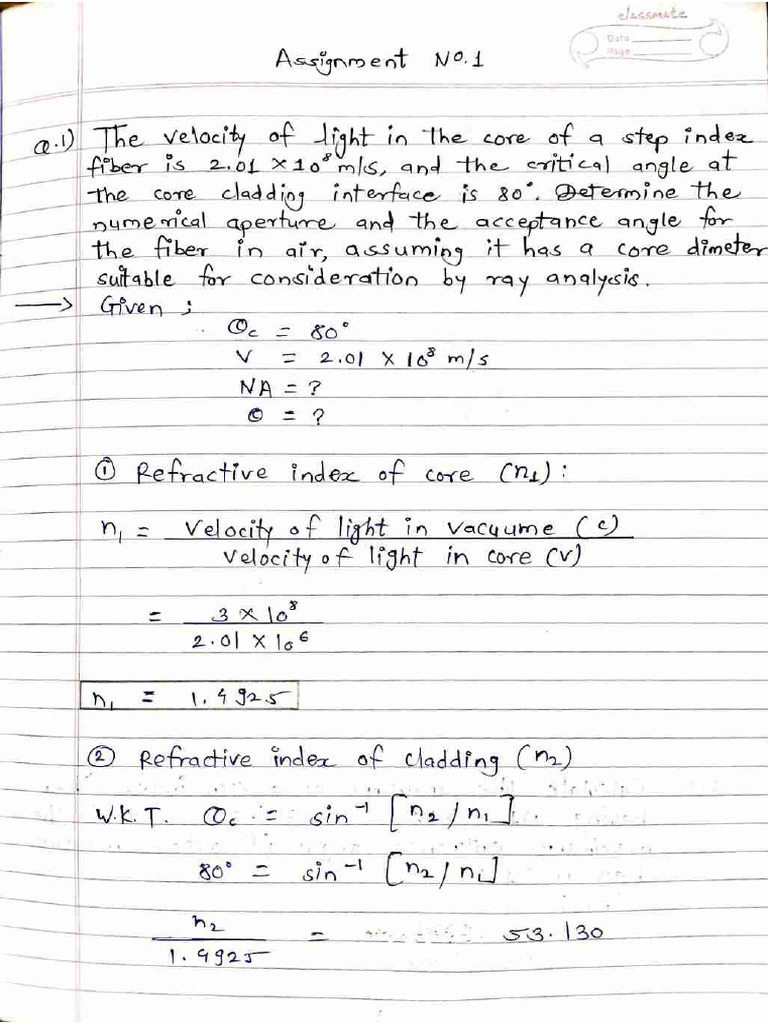 classmate
Date
Page
Assignment No.1
Q.1) The velocity of light in the core of a step index
fiber is 2.01 × 10⁸ m/s, and the critical angle at
the core cladding interface is 80°. Determine the
numerical aperture and the acceptance angle for
the fiber in air, assuming it has a core dimeter
suitable for consideration by ray analysis.
→ Given ;
Θc = 80°
V = 2.01 × 10⁸ m/s
NA = ?
Θ = ?
① Refractive index of core (n1) :
n1 = Velocity of light in vacuume (c)
Velocity of light in core (v)
= 3 × 10⁸
2.01 × 10⁶
n1 = 1.4925
② Refractive index of cladding (n2)
W.K.T. Θc = sin⁻¹ [n2/n1].
80° = sin⁻¹ [n2/n1]
n2
1.4925 = 53.130